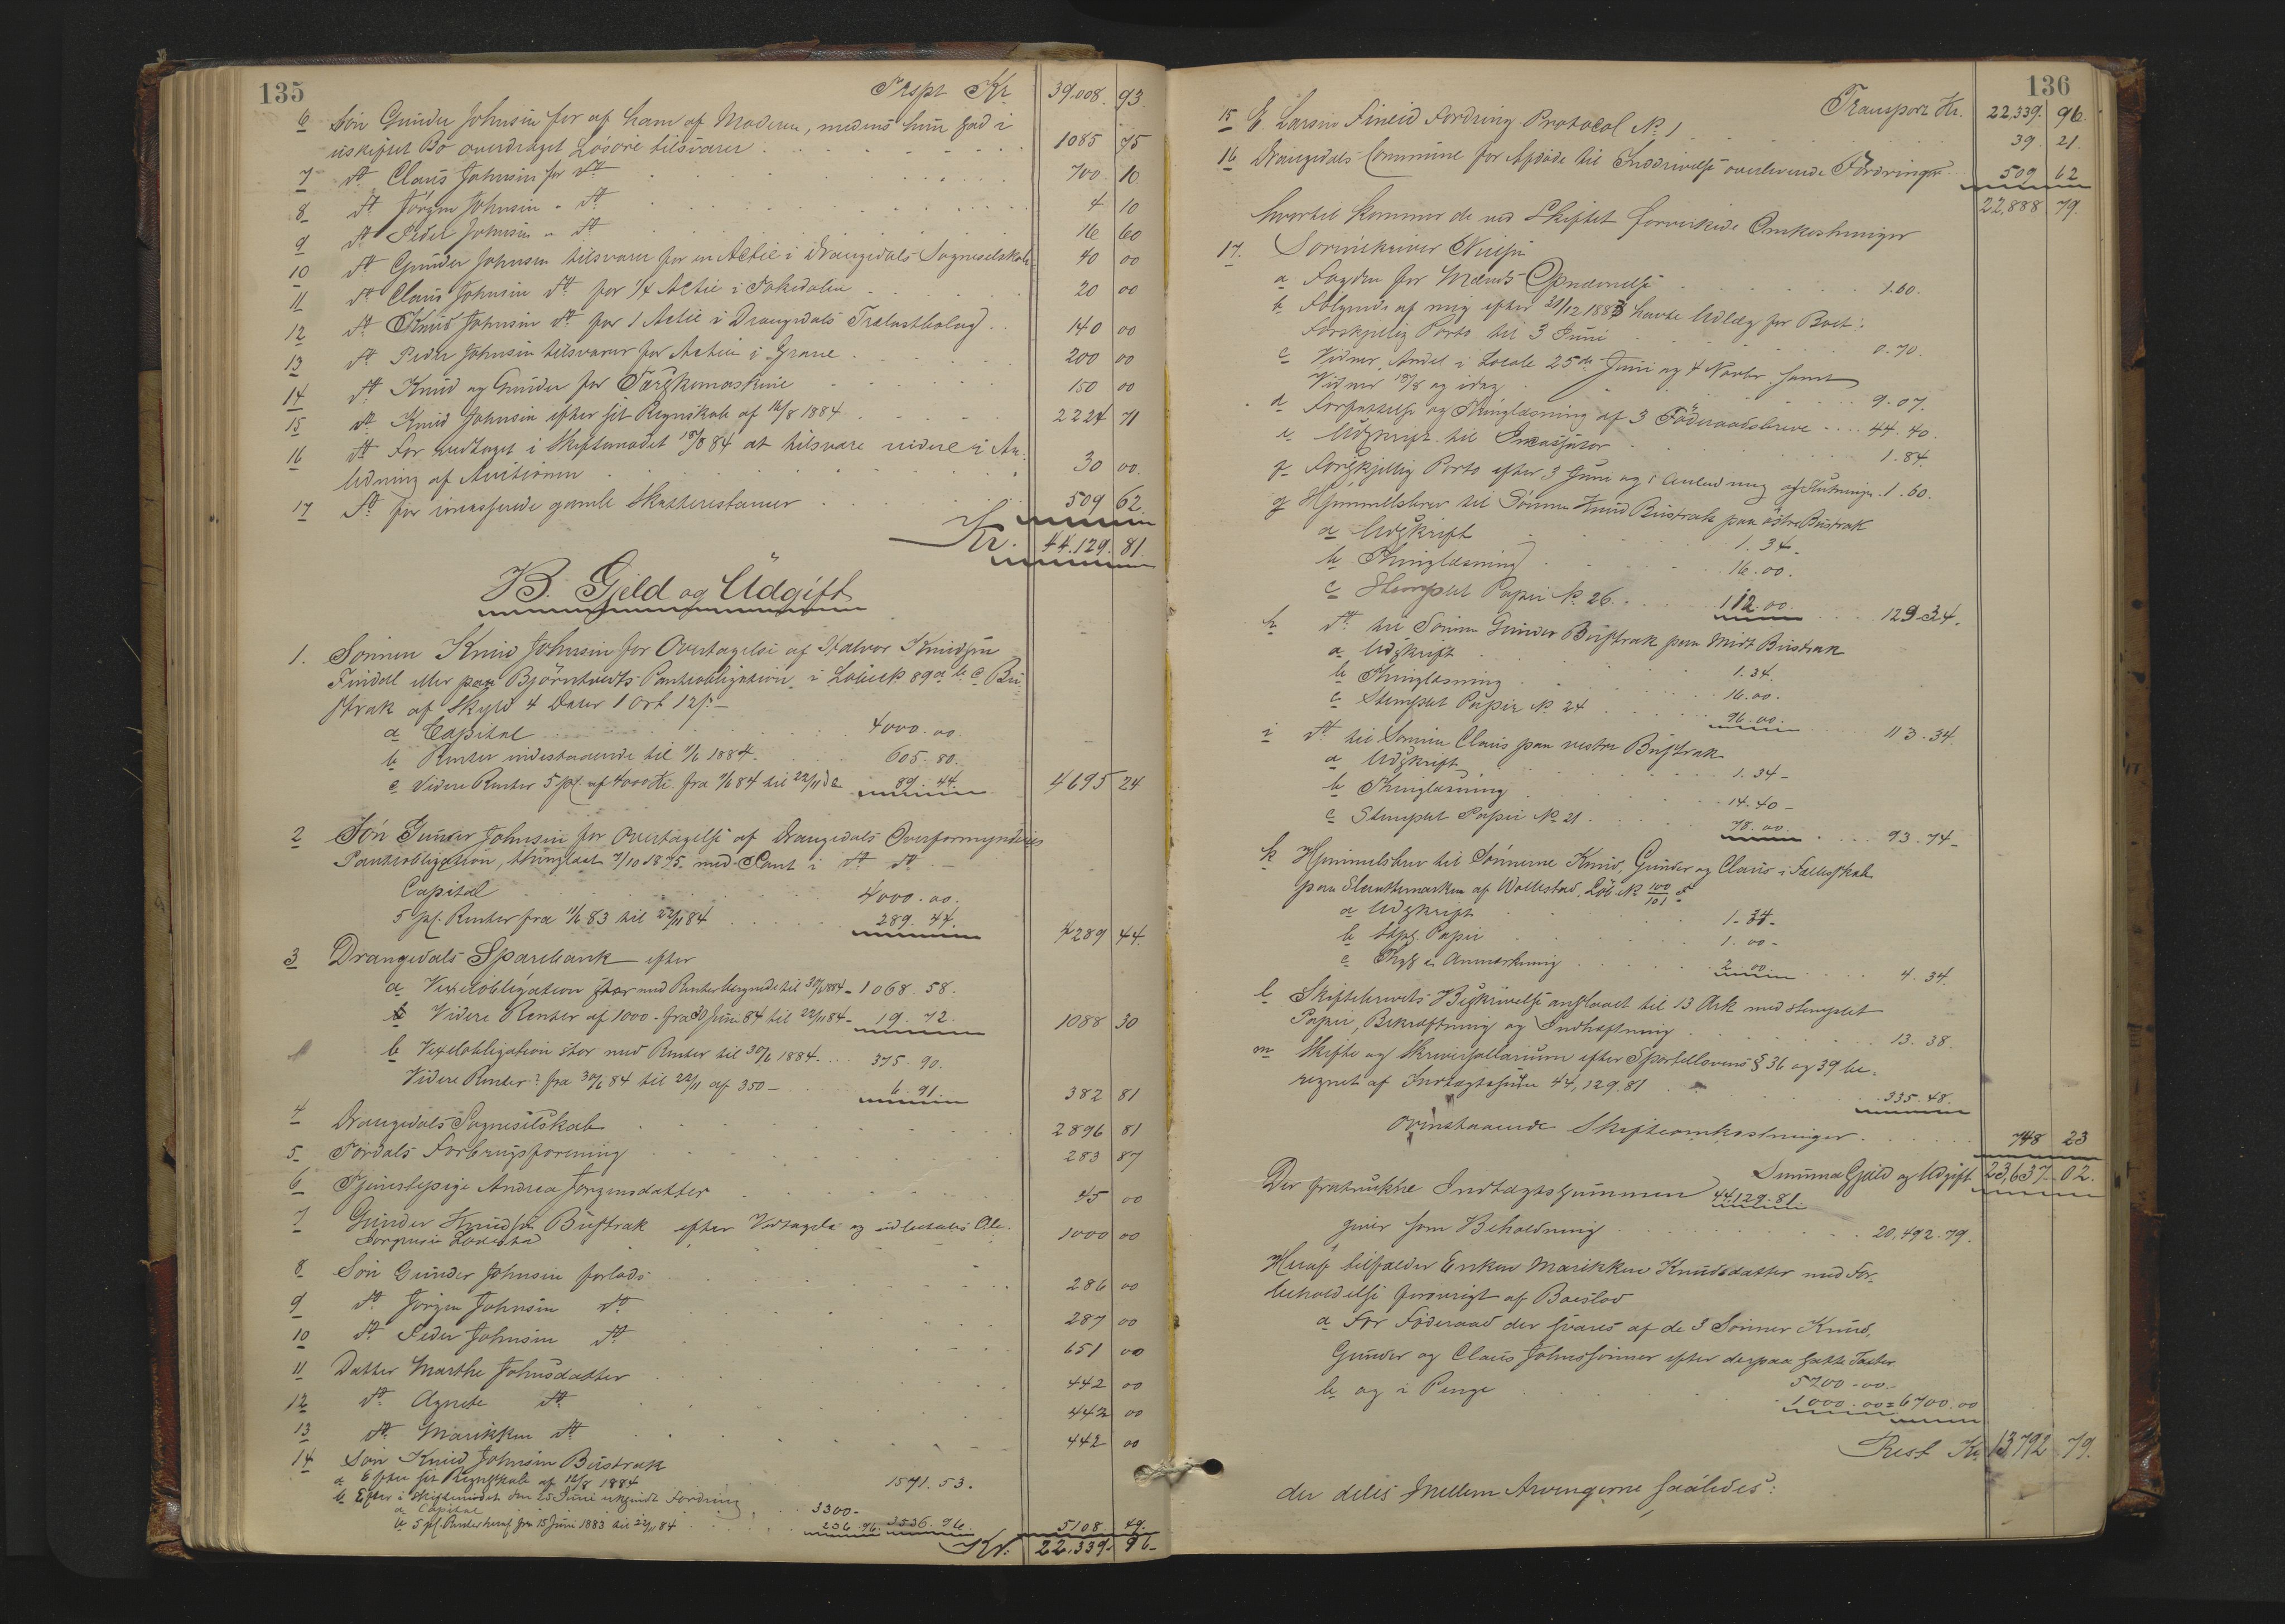 135
Trspt Kr. 39.008. 93.
6 Søn Gunder Johnsen for af ham af Moderen, medens hun sad i
uskiftet Bo overdraget Løsøre tilsvarer 1085 75
7 dto Claus Johnsen for dto 700. 10
8 dto Jörgen Johnsen " dto 4 10
9 dto Peder Johnsen " dto 16 60
10 dto Gunder Johnsen tilsvarer for en Actie i Drangedals Sogneselskab 40 00
11 dto Claus Johnsen dto for 1/4 Actie i Tokedølen 20 00
12 dto Knud Johnsen dto for 1 Actie i Drangedals Trælastbolag 140 00
13 dto Peder Johnsen tilsvarer for Actie i Grane 200 00
14 dto Knud og Gunder for Tærskemaskine 150 00
15 dto Knud Johnsen efter sit Regnskab af 12/8 1884 2224 71
16 dto For vedtaget i Skiftemødet 18/8 84 at tilsvare videre i An-
ledning af Auctionen 30 00.
17 dto for incasserede gamle Skatterestancer 509 62.
Kr. 44.129. 81.
B. Gjeld og Udgift
1. Sønnen Knud Johnsen for Overtagelse af Halvor Knudsen
Findal eller paa Björntvedts Pantobligation i Løbe No 89 a. b. c. Bu-
strak af Skyld 4 Daler 1 Ort 12 s.
a Capital 4000. 00.
b Renter indestaaende til 11/6 1884. 605. 80.
c Videre Renter 5 pC. af 4000 Kr. fra 11/6 84 til 22/11 d.a. 89. 44. 4695 24
2 Søn Gunder Johnsen for Overtagelse af Drangedals Overformynderies
Pantobligation, thinglæst 7/10 1875. med Pant i dto dto
Capital 4000. 00.
5 pC. Renter fra 11/6 83 til 22/11 84 289. 44. 4289 44.
3 Drangedals Sparebank efter
a Vexelobligation stor med Renter beregnede til 30/6 1884 - 1068. 58.
Videre Renter af 1000 - fra 30 Juni 84 til 22/11 84 - 19. 72. 1088 30
b Vexelobligation stor med Renter til 30/6 1884. 375. 90.
Videre Renter fra 30/6 84 til 22/11 af 350 - 6. 91. 382 81
4 Drangedals Sogneselskab 2896 81
5 Tørdals Forbrugsforening 283 87
6 Tjenestepige Andrea Jörgensdatter 45 00
7 Gunder Knudsen Bustrak efter Vedtagelse og udbetales Ole
1000 00
8 Søn Gunder Johnsen forlods 286 00
9 dto Jörgen Johnsen dto 287 00
10 dto Peder Johnsen dto 651 00
11 Datter Marthe Johnsdatter 442 00
12 dto Agnete dto 442 00
13 dto Marikken dto 442 00
14 Søn Knud Johnsen Bustrak
a Efter sit Regnskab af 12/8 1884 1571. 53.
b Efter i Skiftemødet den 25 Juni erkjendt Fordring
a Capital 3300 -
b 5 pC. Renter heraf fra 15 Juni 1883 til 22/11 84 236. 96. 3536. 96. 5108 49.
Kr. 22.339. 96-
136
Transport Kr. 22,339. 96.
15 E. Larsens Fineid Fordring Protocol No 1 39. 21.
16 Drangedals Commune for Afdøde til Inddrivelse overleverede Fordringer 509 62
22,888 79.
hvortil kommer de ved Skiftet forvirkede Omkostninger
17. Sorenskriver Nielsen
a Fogden for Mænds Opnævnelse 1.60.
b Følgende af mig efter 31/12 1883 havte Udlæg for Boet:
Forskjellig Porto til 3 Juni 0.70.
c Vidner, Andel i Locale 25de Juni og 4 Novbr. samt
Vidner 18/8 og idag 9.07.
d Forfattelse og Thinglæsning af 3 Föderaadsbreve 44.40.
e Udskrift til Incassator 1.84.
f Forskjellig Porto efter 3 Juni og i Anledning af Slutningen 1.60.
g Hjemmelsbrev til Sønnen Knud Bustrak paa østre Bustrak
a Udskrift 1.34.
b Thinglæsning 16.00.
c Stemplet Papir No 26. 112.00. 129.34.
h dto til Sønnen Gunder Bustrak paa Midt Bustrak
a Udskrift 1.34.
b Thinglæsning 16.00.
c Stemplet Papir No 24 96.00. 113.34.
i dto til Sønnen Claus paa vestre Bustrak
a Udskrift 1.34-
b Thinglæsning 14.40-
c Stemplet Papir No 21. 78.00. 93.74-
k Hjemmelsbrev til Sønnerne Knud, Gunder og Claus i Fællesskab
paa Sletathemarken af Wollestad, Löb. No 100/101 a
a Udskrift 1.34-
b Stpl. Papir 1.00-
c Thgl. & Anmærkning 2.00 4.34.
l Skiftebrevets Beskrivelse anslaaet til 13 Ark med stemplet
Papir, Bekræftning og Indhæftning 13.38.
m Skifte og Skriversallarium efter Sportellovens § 36 og 39 be-
regnet af Indtægtssum 44,129.81 335.48.
Ovenstaaende Skifteomkostninger 748 23
Summa Gjæld og Udgift 23,637. 02.
Der fratrukket Indtægtssummen 44,129.81.
giver som Beholdning 20,492.79.
Heraf tilfalder Enken Marikken Knudsdatter med For-
beholdelse forøvrigt af Boeslod
a For Föderaad der svares af de 3 Sønner Knud,
Gunder og Claus Johnssønner efter derpaa satte Taxter
5700-00.
b og i Penge 1000.00=6700.00
Rest Kr. 13792 79.
der deles mellem Arvingerne saaledes: